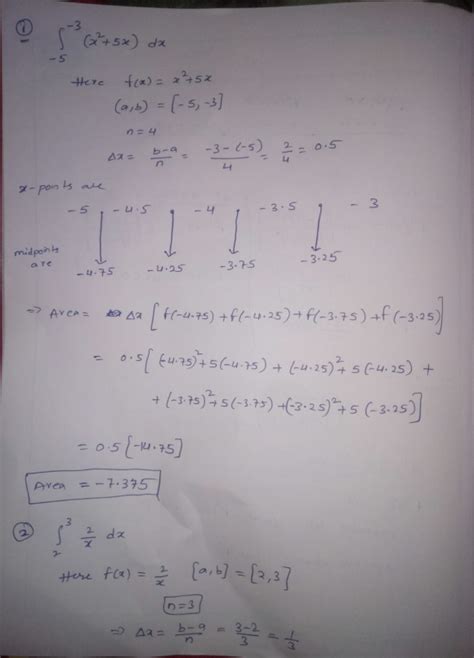 ① ∫₋₅⁻³ (x²+5x) dx
Here f(x) = x²+5x
(a,b) = [-5,-3]
n=4
Δx = b-a/n = -3-(-5)/4 = 2/4 = 0.5
x-points are
-5 -4.5 -4 -3.5 -3
midpoints are
-4.75 -4.25 -3.75 -3.25
⇒ Area = Δx [f(-4.75)+f(-4.25)+f(-3.75)+f(-3.25)]
= 0.5[(-4.75)²+5(-4.75) + (-4.25)²+5(-4.25) +
+(-3.75)²+5(-3.75)+(-3.25)²+5(-3.25)]
= 0.5[-14.75]
Area = -7.375
② ∫₂³ 2/x dx
Here f(x) = 2/x [a,b] = [2,3]
n=3
⇒ Δx = b-a/n = 3-2/3 = 1/3